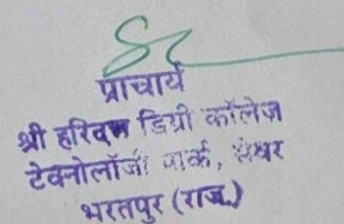 प्राचार्य
श्री हरिदत्त डिग्री कॉलेज
टेक्नोलॉजी पार्क,
भरतपुर (राज.)